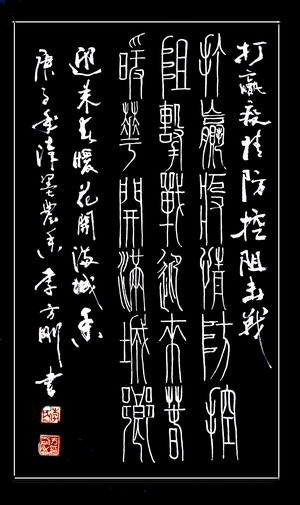 打赢疫情防控阻击战
打贏疫情防控
阻擊戰迎來春
暖華開滿城鄉
迎来春暖花開满城香
庚子年墨農李方刚书